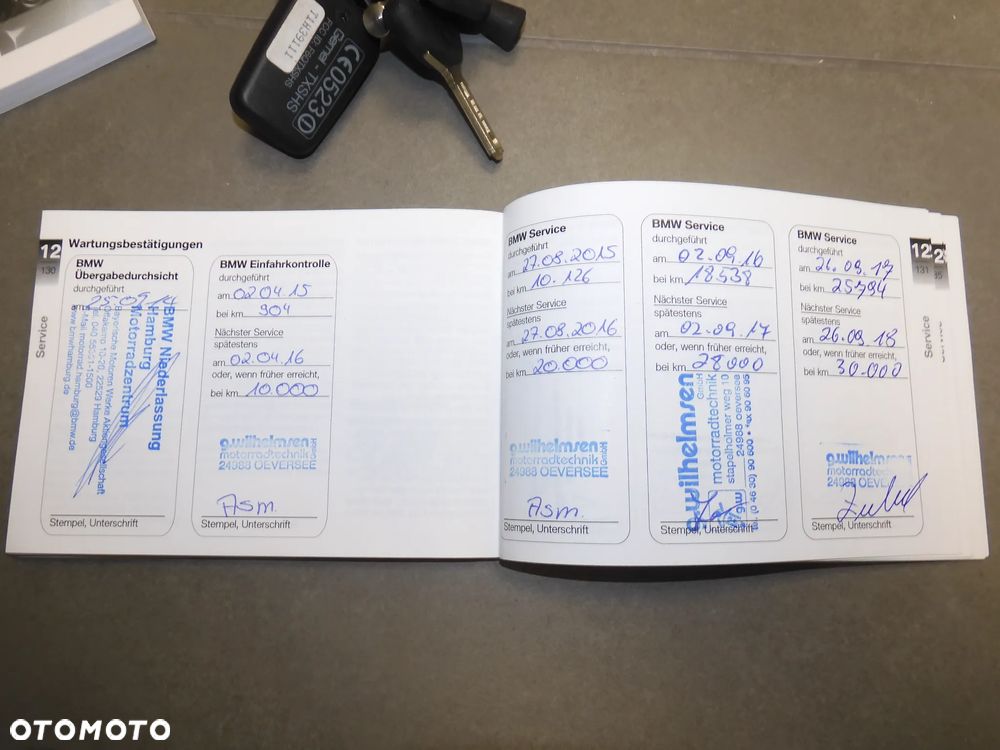 T1H39111
FCC ID:FE91TXSHS
Gemel - TXSHS
CE0523
12
130
Service
Wartungsbestätigungen
BMW
Übergabedurchsicht
durchgeführt
am 25-09-14
BMW Niederlassung
Hamburg
Motorradzentrum
Bayerische Motoren Werke Aktiengesellschaft
22529 Hamburg
www.bmwhamburg.de
Stempel, Unterschrift
BMW Einfahrkontrolle
durchgeführt
am 02 04 15
bei km 904
Nächster Service
spätestens
am 02.04.16
oder, wenn früher erreicht,
bei km 10.000
g.wilhelmsen GmbH
motorradtechnik
24988 OEVERSEE
Asm.
Stempel, Unterschrift
BMW Service
durchgeführt
am 27.08.2015
bei km 10.126
Nächster Service
spätestens
am 27.08.2016
oder, wenn früher erreicht,
bei km 20.000
g.wilhelmsen GmbH
motorradtechnik
24988 OEVERSEE
Asm.
Stempel, Unterschrift
BMW Service
durchgeführt
am 02.09.16
bei km 18.538
Nächster Service
spätestens
am 02.09.17
oder, wenn früher erreicht,
bei km 28000
g.wilhelmsen GmbH
motorradtechnik
stapelholmer weg 10
24988 oeversee
tel. (0 46 30) 90 600 • fax 90 60 95
Stempel, Unterschrift
BMW Service
durchgeführt
am 26.09.17
bei km 25794
Nächster Service
spätestens
am 26.09.18
oder, wenn früher erreicht,
bei km 30.000
g.wilhelmsen
motorradtechnik
24988 OEV
Stempel, Unterschrift
12
131
Service
OTOMOTO